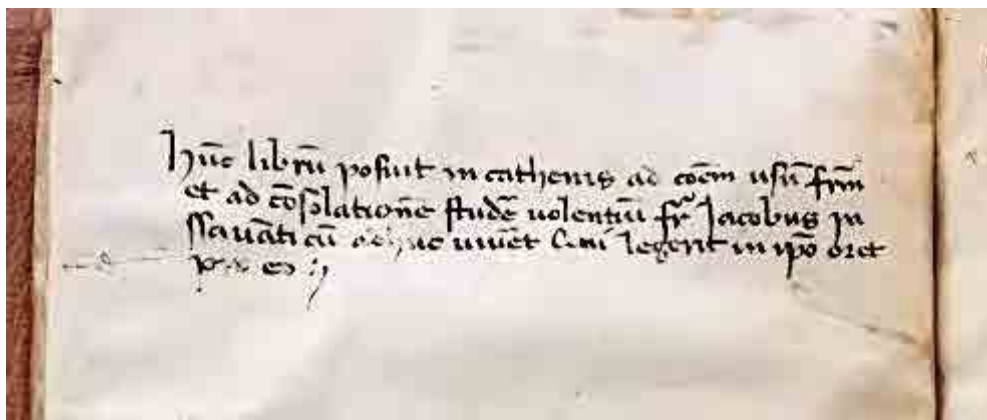 hūc librū posuit in cathenis ad cōem usū frm̄
et ad cōsolationē studē uolentiū fr̄ Jacobus in
ssauāti cū adhuc uiuēt legerit in ipō oret
p eo